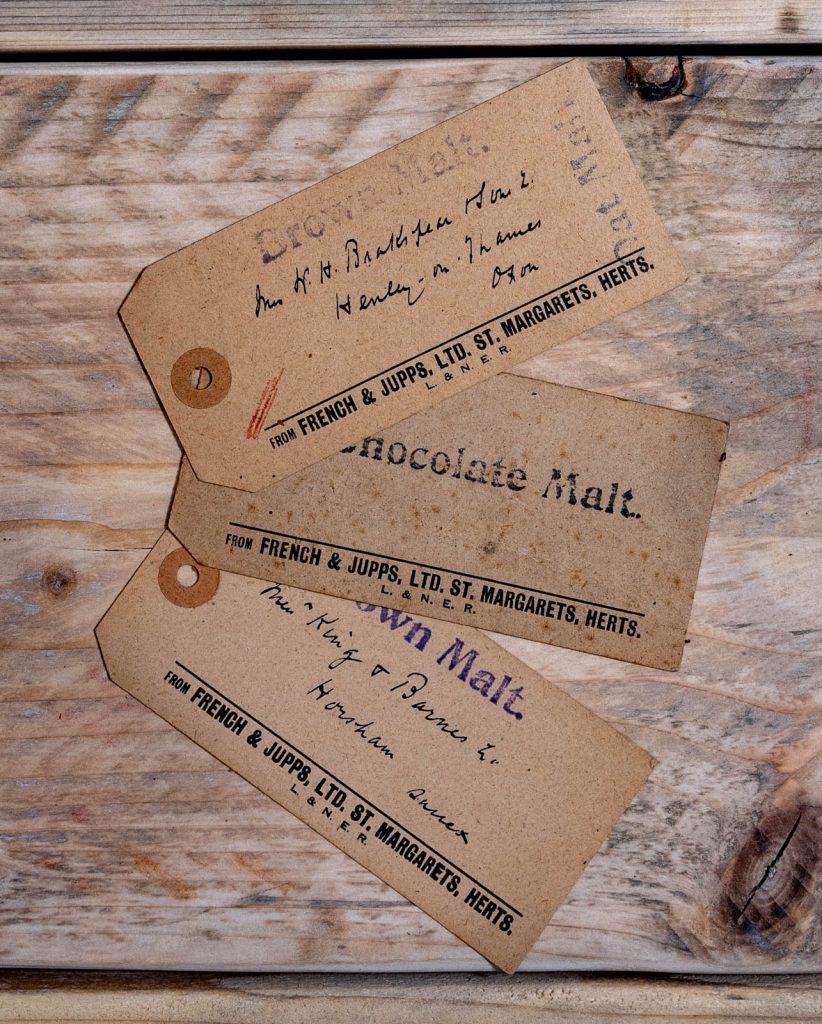 Brown Malt.
Mess W. H. Brakspear & Sons L.
Henley-on-Thames
Oxon
FROM FRENCH & JUPPS, LTD. ST. MARGARETS, HERTS.
L. & N. E. R.
Chocolate Malt.
FROM FRENCH & JUPPS, LTD. ST. MARGARETS, HERTS.
L. & N. E. R.
own Malt.
King & Barnes L.
Horsham
Sussex
FROM FRENCH & JUPPS, LTD. ST. MARGARETS, HERTS.
L. & N. E. R.